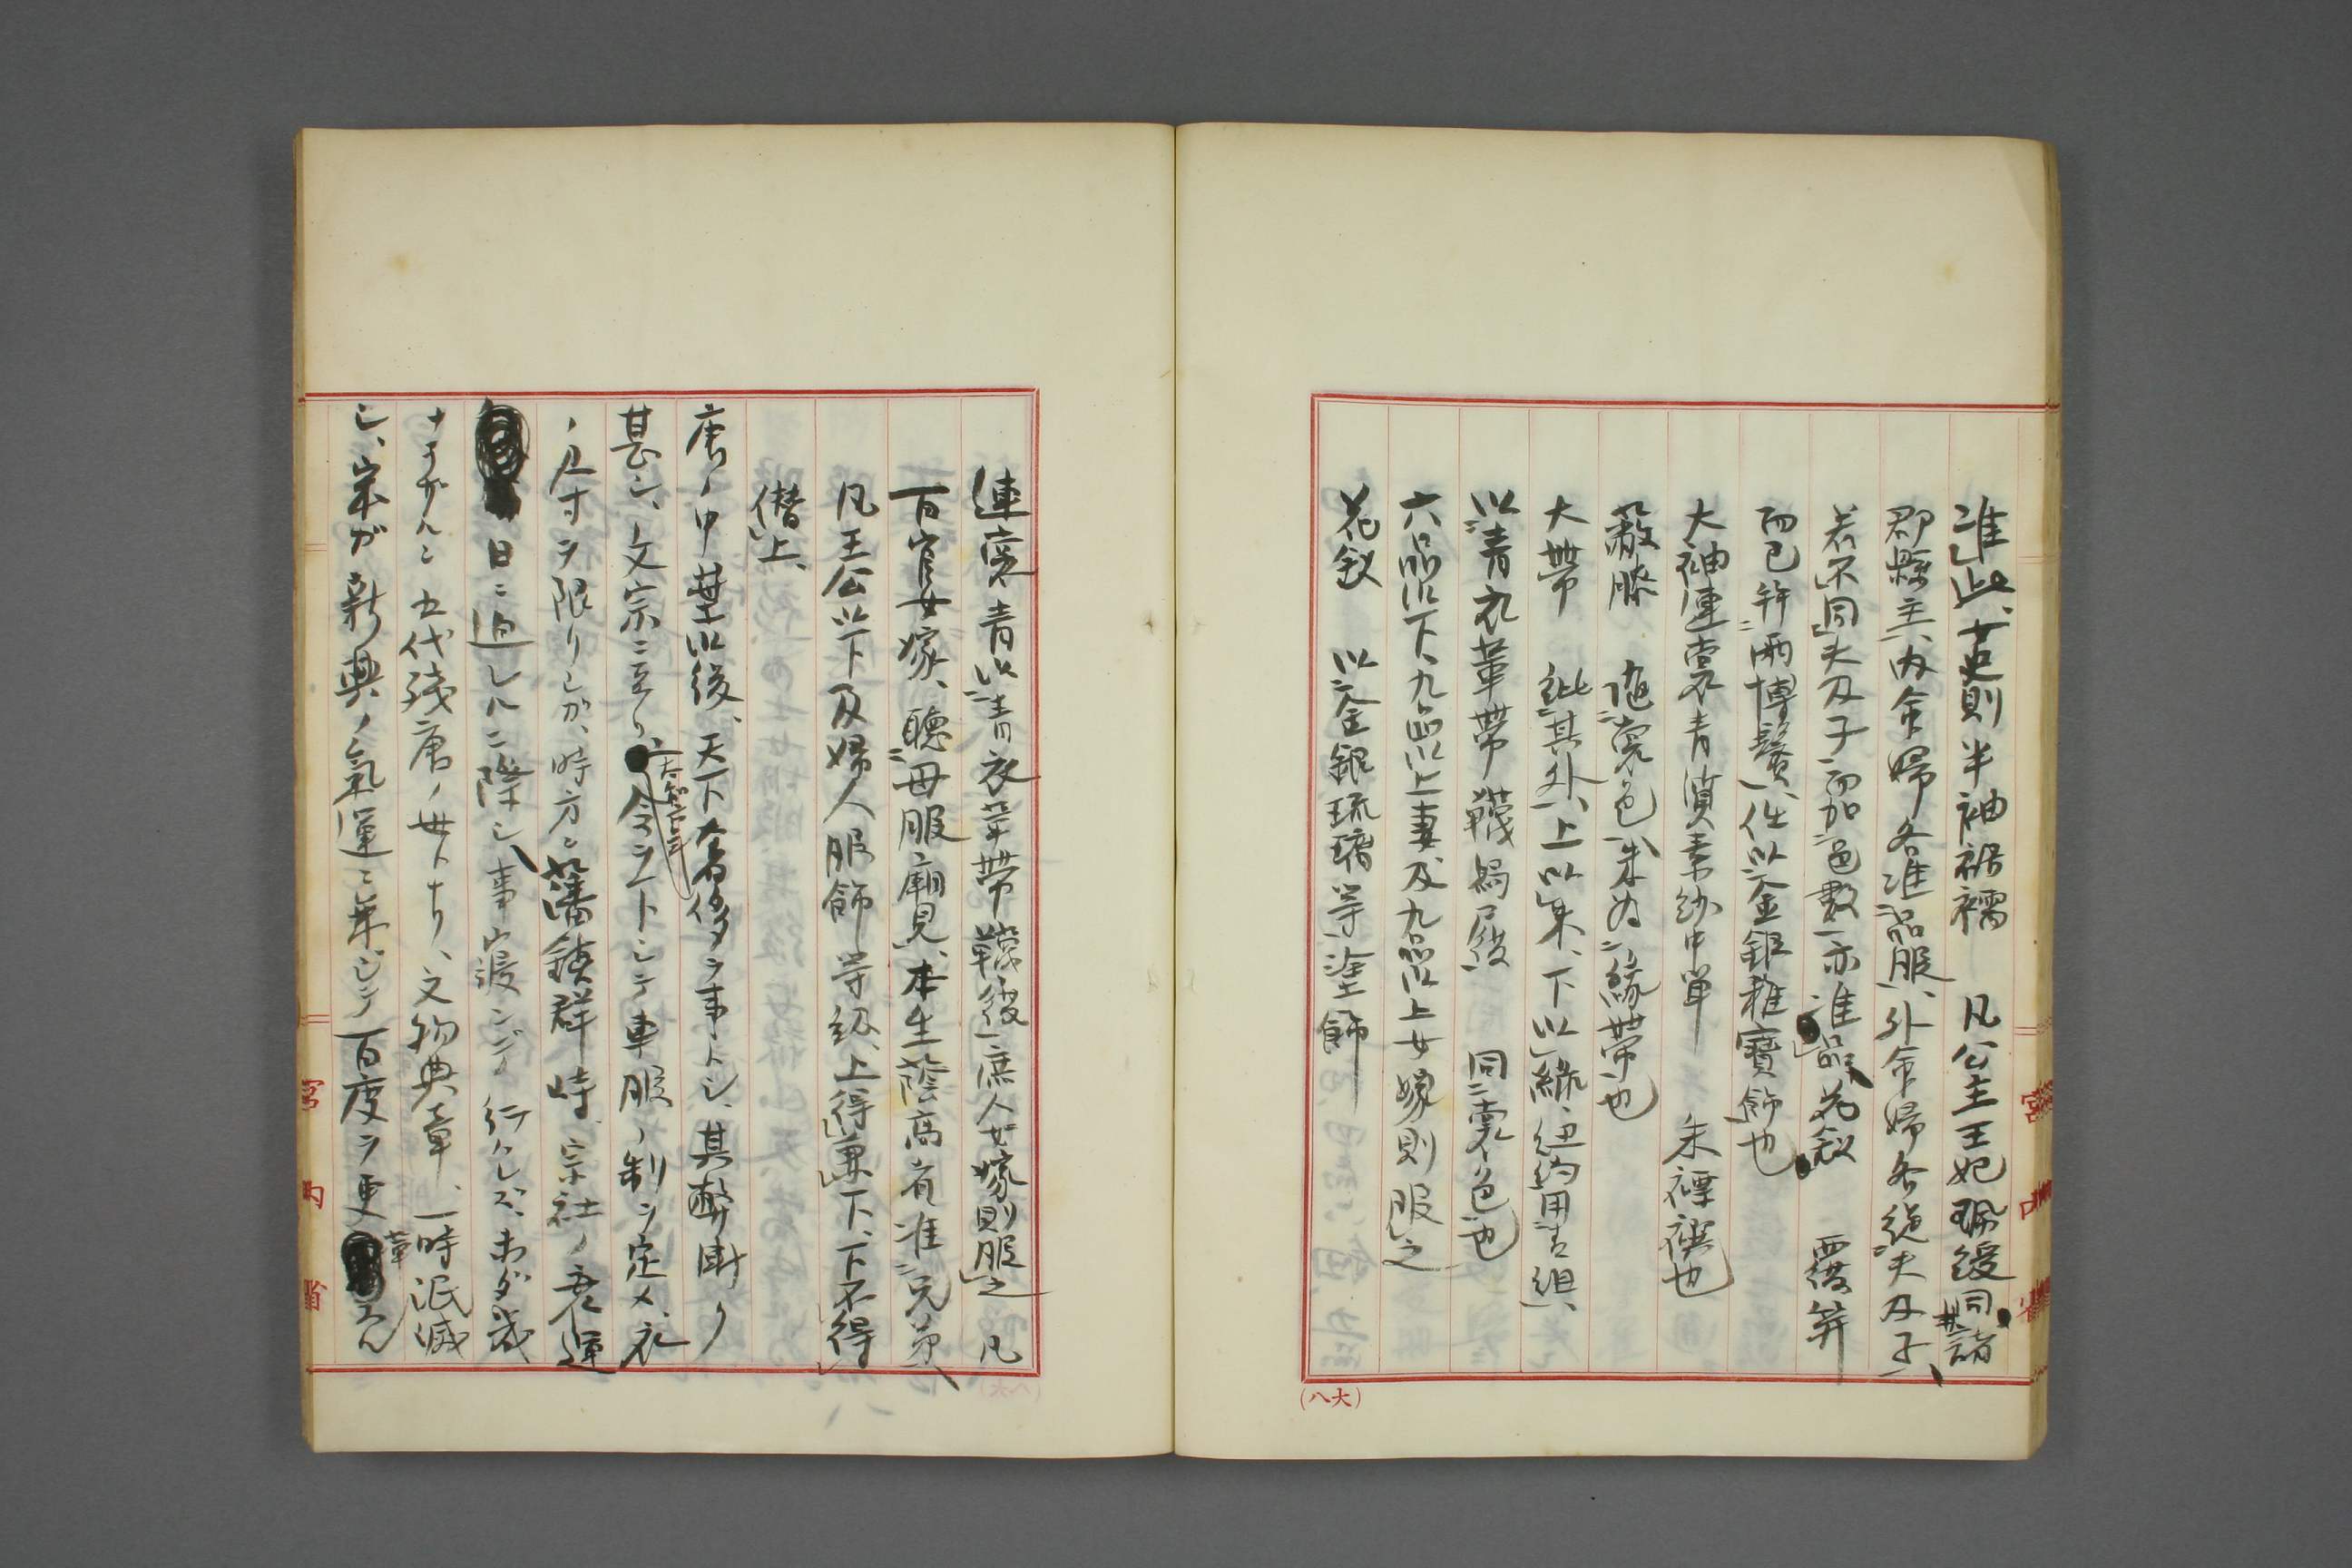 准此、女史則半袖裙襦　凡公主王妃珮綬同諸
郡縣主、内命婦各准品服、外命婦各從夫及子、
若不同夫及子而加邑數亦准品、花釵　覆笄
而已、笄兩博鬢、任以金銀雜寶飾也
大袖連裳　青質素紗中單　朱褾襈也
蔽膝　隨裳色、朱為緣帶也
大帶　紕其外、上以朱、下以綠、紐約用青組、
以青衣革帶韈舄履　同裳色也
六品以下、九品以上妻及九品以上女嫁則服之
花釵　以金銀琉璃等塗飾
連裳青以青衣革帶韈履　庶人女嫁則服之　凡
百官女嫁、聽母服廟見、本生蔭高者准兄弟、
凡王公以下及婦人服飾等級、上得兼下、下不得
僭上、
唐ノ中葉以後、天下奢侈ヲ事トシ、其弊漸ク
甚シ、文宗ニ至リ、太和三年令シテ車服ノ制ヲ定メ、衣
ノ尺寸ヲ限リシガ、時方ニ藩鎮群峙、宗社ノ衰運
日ニ迫レルニ際シ、事寢ンデ行ハレズ、未ダ幾
ナラザルニ五代殘唐ノ世トナリ、文物典章、一時泯滅
シ、宋ガ新興ノ氣運ニ乘ジテ百度ヲ更章スル
宮内省
宮内省
(大八)